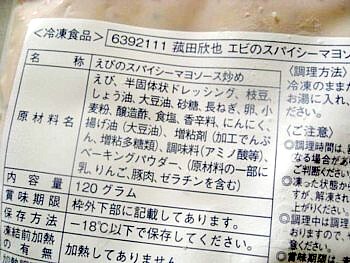 〈冷凍食品〉 6392111 菰田欣也 エビのスパイシーマヨ
名 称 えびのスパイシーマヨソース炒め
原材料名 えび、半固体状ドレッシング、枝豆、
しょうゆ、大豆油、砂糖、長ねぎ、卵、小
麦粉、醸造酢、食塩、香辛料、にんにく、
揚げ油(大豆油)、増粘剤(加工でんぷ
ん、増粘多糖類)、調味料(アミノ酸等)、
ベーキングパウダー、(原材料の一部に
乳、りんご、豚肉、ゼラチンを含む)
内 容 量 120グラム
賞味期限 枠外下部に記載してあります。
保存方法 −18℃以下で保存してください。
凍結前加熱の有無 加熱してありません
〈調理方法〉
冷凍のまま
お湯に入れ、
〈ご注意〉
●調理時間は、
なる場合があ
ご判断ください
●凍った状態か
●調理中は調理